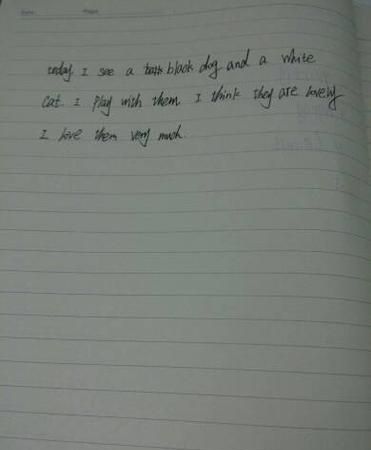 today I see a black dog and a white
cat. I play with them I think they are lovely
I love them very much.